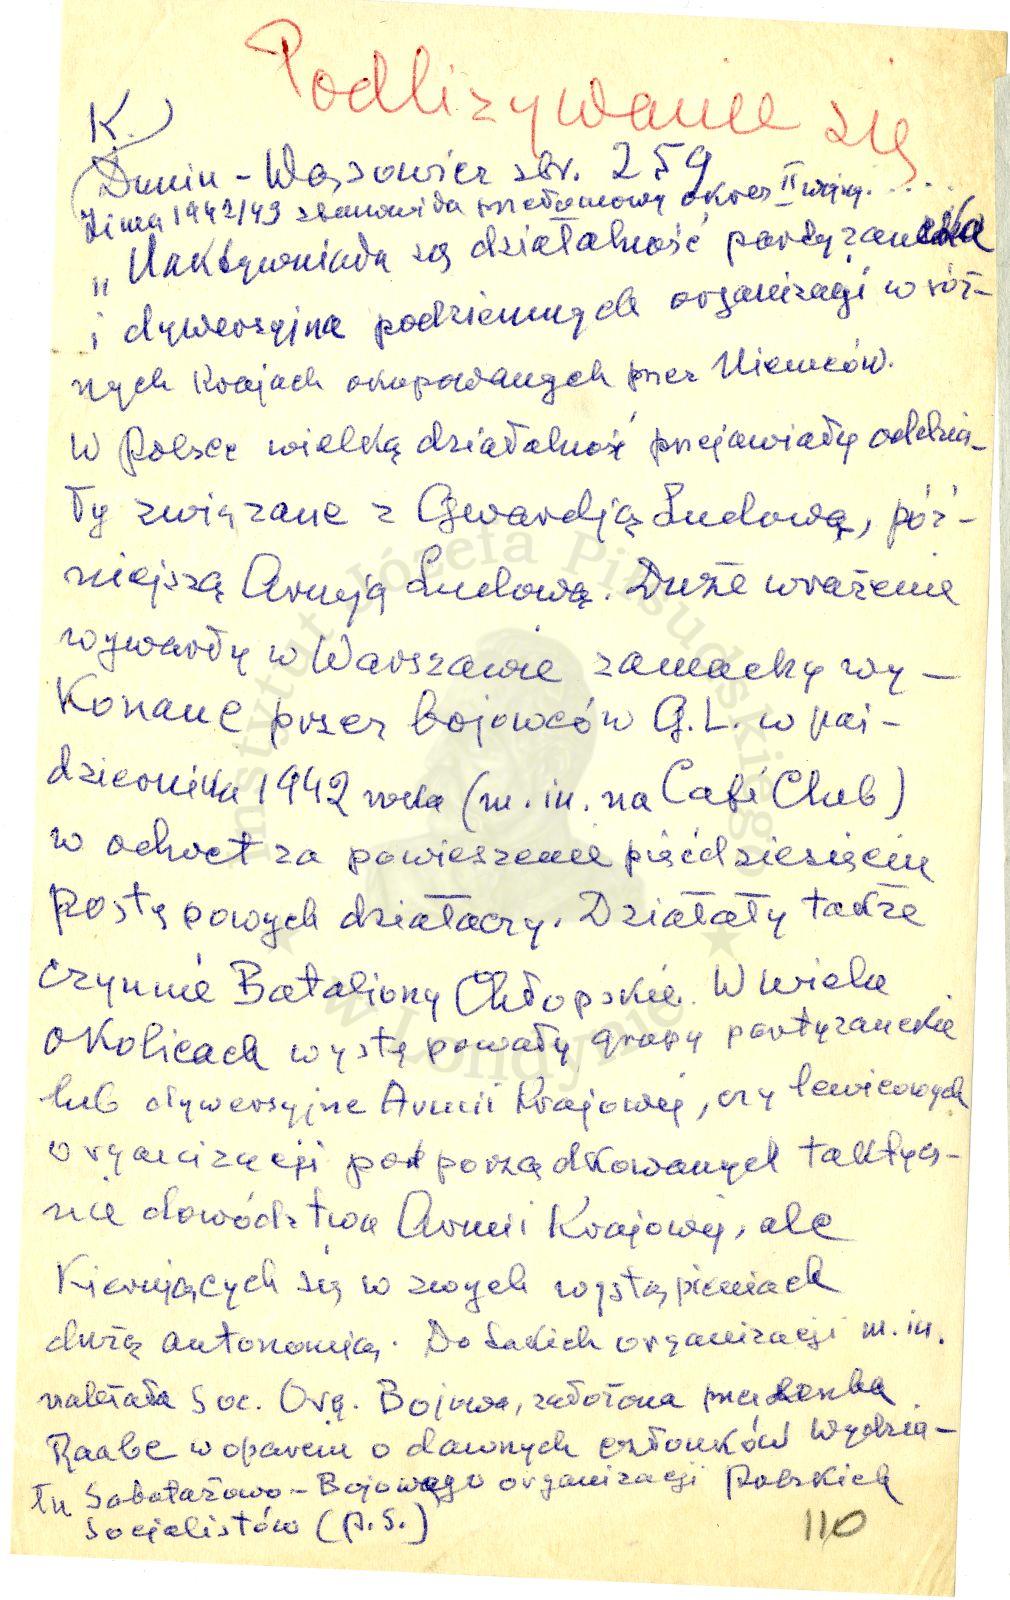 Podlizywanie się
K.)
Dunin-Wąsowicz str. 259
Zima 1942/43 stanowiła przełomowy okres II wojny.....
"Uaktywniała się działalność partyzancka
i dywersyjna podziemnych organizacji w róż-
nych krajach okupowanych przez Niemców.
W Polsce wielką działalność przejawiały oddzia-
ły związane z Gwardją Ludową, póź-
niejszą Armją Ludową. Duże wrażenie
wywarły w Warszawie zamachy wy-
konane przez bojowców G.L. w paź-
dzierniku 1942 roku (m. in. na Café Club)
w odwet za powieszenie pięćdziesięciu
postępowych działaczy. Działały także
czynnie Bataljony Chłopskie. W wielu
okolicach występowały grupy partyzanckie
lub dywersyjne Armii Krajowej, czy lewicowych
organizacji podporządkowanych taktycz-
nie dowództwu Armii Krajowej, ale
kierujących się w swych wystąpieniach
dużą autonomią. Do takich organizacji m. in.
należała Soc. Org. Bojowa, założona przez Leszka
Raabe w oparciu o dawnych członków Wydzia-
łu Sabotażowo-Bojowego organizacji Polskich
Socjalistów (P.S.)
110
Instytut Józefa Piłsudskiego
w Londynie